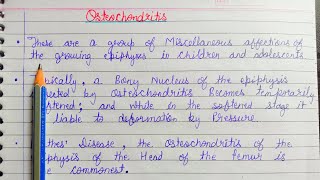 Osteochondritis
• These are a group of Miscellaneous affections of
the growing epiphyses in children and adolescents
ically, a Bony Nucleus of the epiphysis
ected by Osteochondritis Becomes temporarily
ftened; and while in the softened stage it
liable to deformation by Pressure.
thes' Disease, the Osteochondritis of the
physis of the Head of the femur is
e commonest.